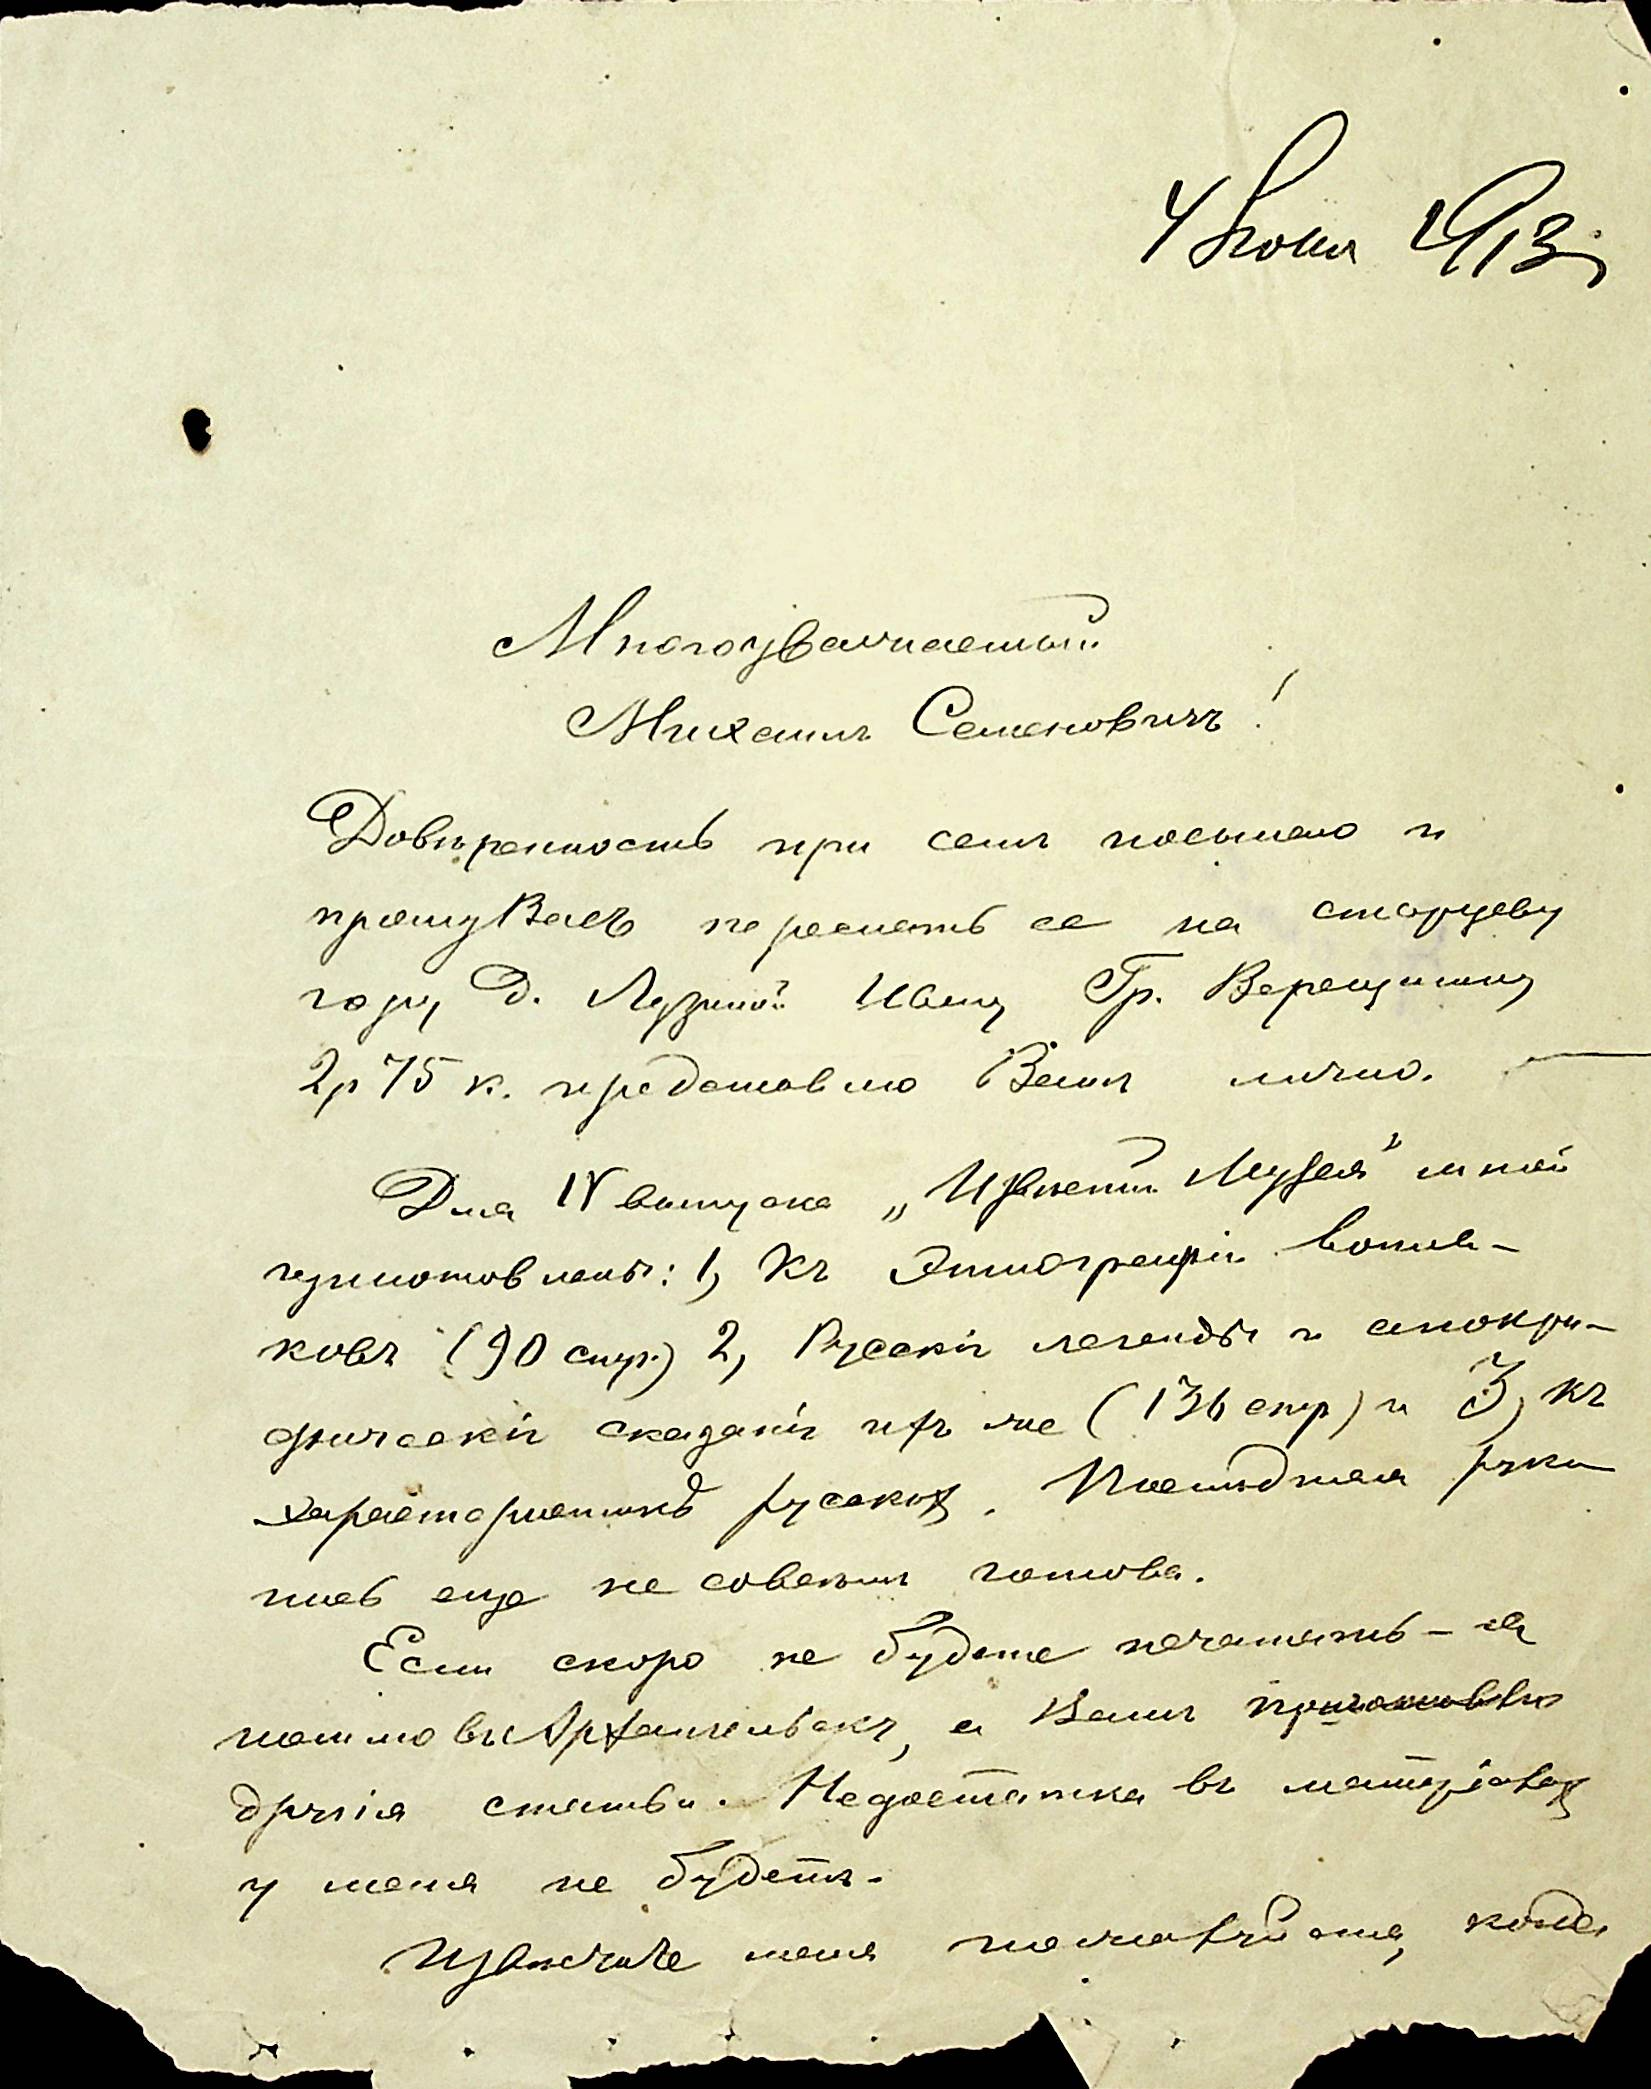 4 Июня 1913
Многоуважаемый
Михаилъ Семеновичъ!
Довѣренность при семъ посылаю и
прошу Васъ переслать ее на
гору д. Лузиной Ивану Гр. Верещагину
2 р 75 к. представлю Вамъ лично.
Для IV выпуска „Извѣстій Музея" мной
приготовлены: 1, Къ Этнографіи вотя-
ковъ (90 стр.) 2, Русскія легенды и апокри-
фическія сказанія ихъ же (136 стр) и 3, къ
характеристикѣ русскихъ. Послѣдняя руко
пись еще не совсѣмъ готова.
Если скоро не будете печатать – я
пошлю въ Архангельскъ, а Вамъ приготовлю
другія статьи. Недостатка въ матеріалах
у меня не будетъ.
Извѣстите меня пожалуйста, когда